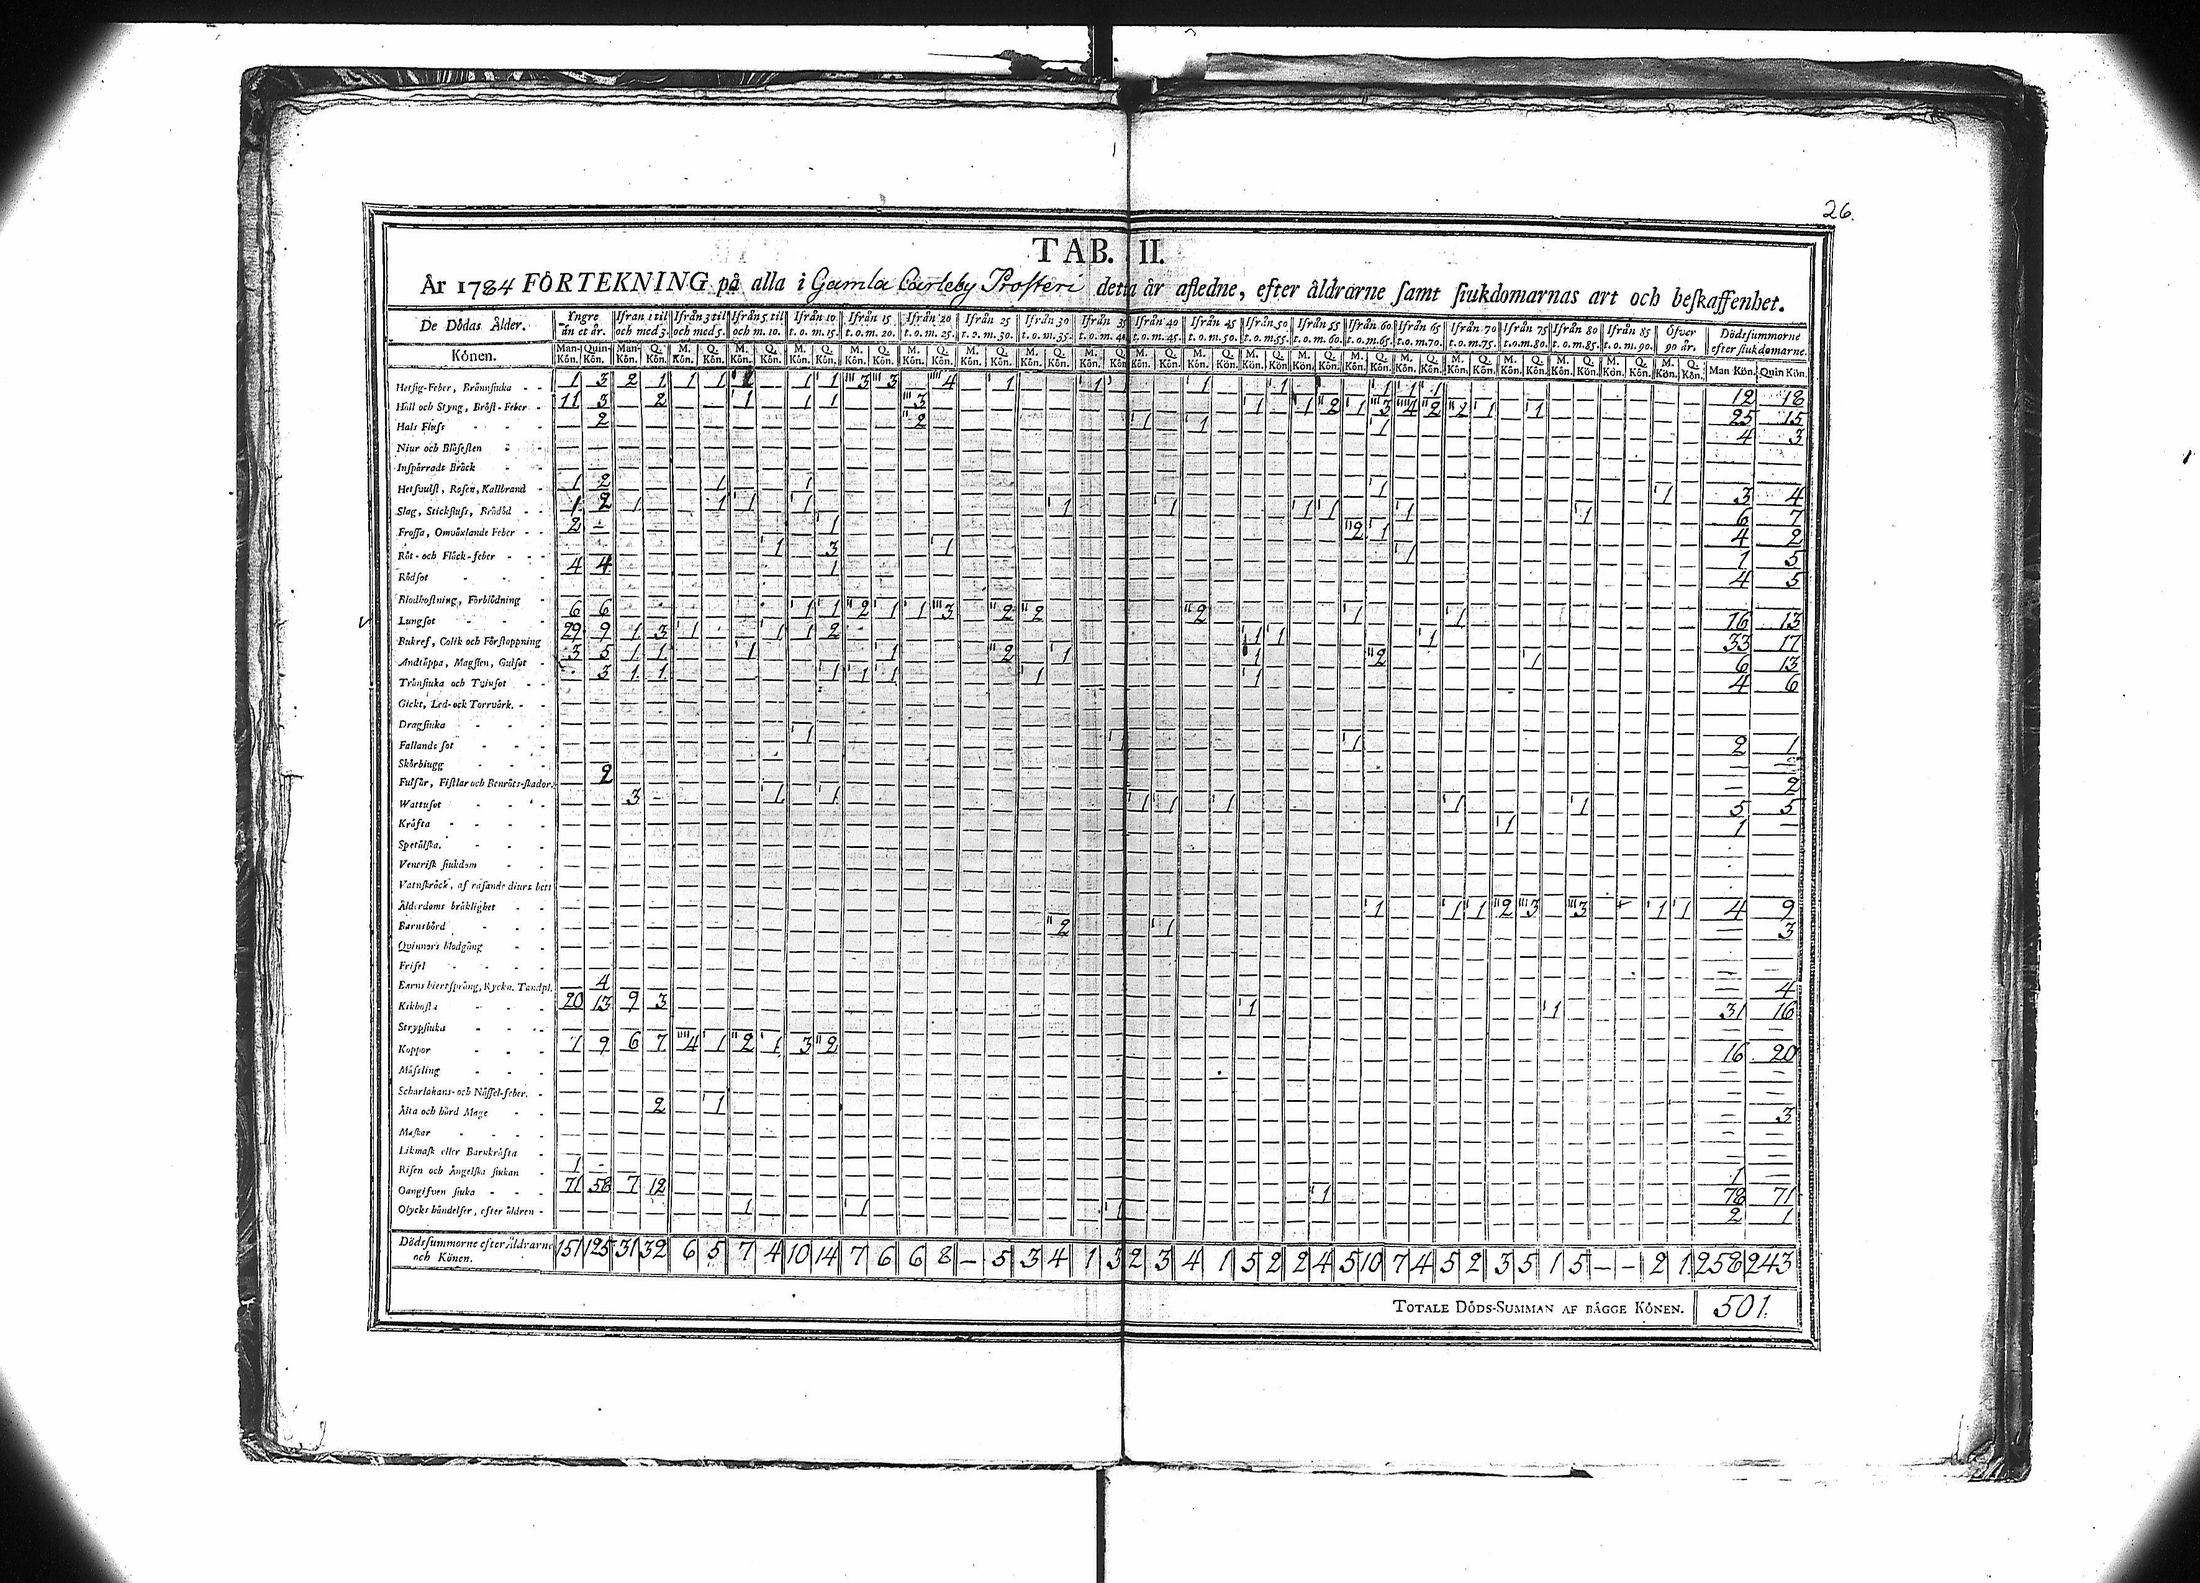 26.
TAB. II.
År 1784 FÖRTEKNING på alla i Gamla Carleby Prosteri detta år afledne, efter åldrarne samt siukdomarnas art och beskaffenhet.
De Dödas Ålder. Yngre än et år. Ifrån 1 til och med 3. Ifrån 3 til och med 5. Ifrån 5 til och m. 10. Ifrån 10 t. o. m. 15. Ifrån 15 t. o. m. 20. Ifrån 20 t. o. m. 25. Ifrån 25 t. o. m. 30. Ifrån 30 t. o. m. 35. Ifrån 35 t. o. m. 40. Ifrån 40 t. o. m. 45. Ifrån 45 t. o. m. 50. Ifrån 50 t. o. m. 55. Ifrån 55 t. o. m. 60. Ifrån 60 t. o. m. 65. Ifrån 65 t. o. m. 70. Ifrån 70 t. o. m. 75. Ifrån 75 t. o. m. 80. Ifrån 80 t. o. m. 85. Ifrån 85 t. o. m. 90. Öfver 90 år. Dödssummorne efter siukdomarne.
Könen. Man-Kön. Quin-Kön. Man-Kön. Q. Kön. M. Kön. Q. Kön. M. Kön. Q. Kön. M. Kön. Q. Kön. M. Kön. Q. Kön. M. Kön. Q. Kön. M. Kön. Q. Kön. M. Kön. Q. Kön. M. Kön. Q. Kön. M. Kön. Q. Kön. M. Kön. Q. Kön. M. Kön. Q. Kön. M. Kön. Q. Kön. M. Kön. Q. Kön. M. Kön. Q. Kön. M. Kön. Q. Kön. M. Kön. Q. Kön. M. Kön. Q. Kön. M. Kön. Q. Kön. M. Kön. Q. Kön. Man Kön. Quin Kön.
Hetsig-Feber, Brännsiuka 1 3 2 1 1 1 1 1 1 3 3 4 1 1 1 1 1 1 1 1 12 18
Håll och Styng, Bröst-Feber 11 3 2 1 1 1 3 1 1 2 1 3 4 2 2 1 1 25 15
Hals Fluss 2 2 1 1 1 4 3
Niur och Blåsesten
Inspärradt Bråck
Hetsvulst, Rosen, Kallbrand 1 2 1 1 1 1 3 4
Slag, Stickfluss, Brådöd 1 2 1 1 1 1 1 1 1 1 1 1 6 7
Frossa, Omväxlande Feber 2 1 2 1 4 2
Röt- och Fläck-feber 1 3 1 1 1 5
Rödsot 4 4 1 4 5
Blodhostning, Förblödning
Lungsot 6 6 1 1 2 1 1 3 2 2 2 1 1 16 13
Bukref, Colik och Förstoppning 29 9 1 3 1 1 1 2 1 1 1 33 17
Andtäppa, Magsten, Gulsot 3 5 1 1 1 1 2 1 1 2 1 6 13
Trånsiuka och Tvinsot 3 1 1 1 1 1 1 1 4 6
Gickt, Led- ock Torrvärk.
Dragsiuka
Fallande sot 1 1 1 2 1
Skörbiugg
Fulsår, Fistlar och Benröts-skador 2 2
Wattusot 3 1 1 1 1 1 1 1 5 5
Kräfta 1 1
Spetälska.
Venerisk siukdom
Vatnskräck, af rasande diurs bett
Ålderdoms bräklighet 1 1 1 2 3 3 1 1 4 9
Barnsbörd 2 1 3
Quinnors blodgång
Frisel
Barns hiertsprång, Ryckn. Tandpl. 4 4
Kikhosta 20 13 9 3 1 1 31 16
Strypsiuka
Koppor 1 9 6 7 4 1 2 1 3 2 16 20
Måssling
Scharlakans- och Näffel-feber.
Älta och hård Mage 2 1 3
Maskar
Likmask eller Barnkräfta
Risen och Ängelska siukan 1 1
Oangifven siuka 71 58 7 12 1 78 71
Olycks händelser, efter åldren 1 1 1 2 1
Dödssummorne efter Åldrarne och Könen. 151 125 31 32 6 5 7 4 10 14 7 6 6 8 – 5 3 4 1 3 2 3 4 1 5 2 2 4 5 10 7 4 5 2 3 5 1 5 – – 2 1 258 243
TOTALE DÖDS-SUMMAN AF BÄGGE KÖNEN. 501.